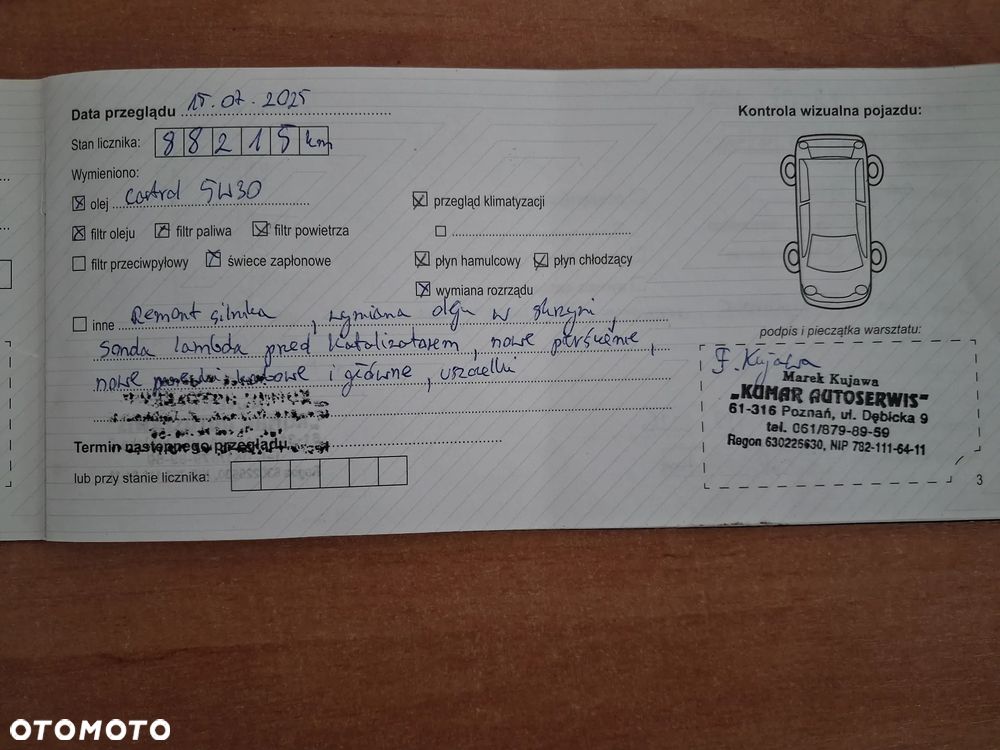 Data przeglądu 15.07.2025
Stan licznika: 88215 km
Wymieniono:
olej Castrol 5W30
filtr oleju filtr paliwa filtr powietrza
filtr przeciwpyłowy świece zapłonowe
przegląd klimatyzacji
płyn hamulcowy płyn chłodzący
wymiana rozrządu
inne Remont silnika, wymiana oleju w skrzyni,
sonda lambda przed katalizatorem, nowe pierścienie,
nowe i główne, uszczelki
Termin następnego przeglądu
lub przy stanie licznika:
Kontrola wizualna pojazdu:
podpis i pieczątka warsztatu:
F. Kujawa
Marek Kujawa
„KUMAR AUTOSERWIS"
61-316 Poznań, ul. Dębicka 9
tel. 061/879-89-59
Regon 630226630, NIP 782-111-64-11
3
OTOMOTO